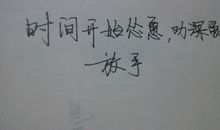 时间开始怂恿,劝深爱
放手